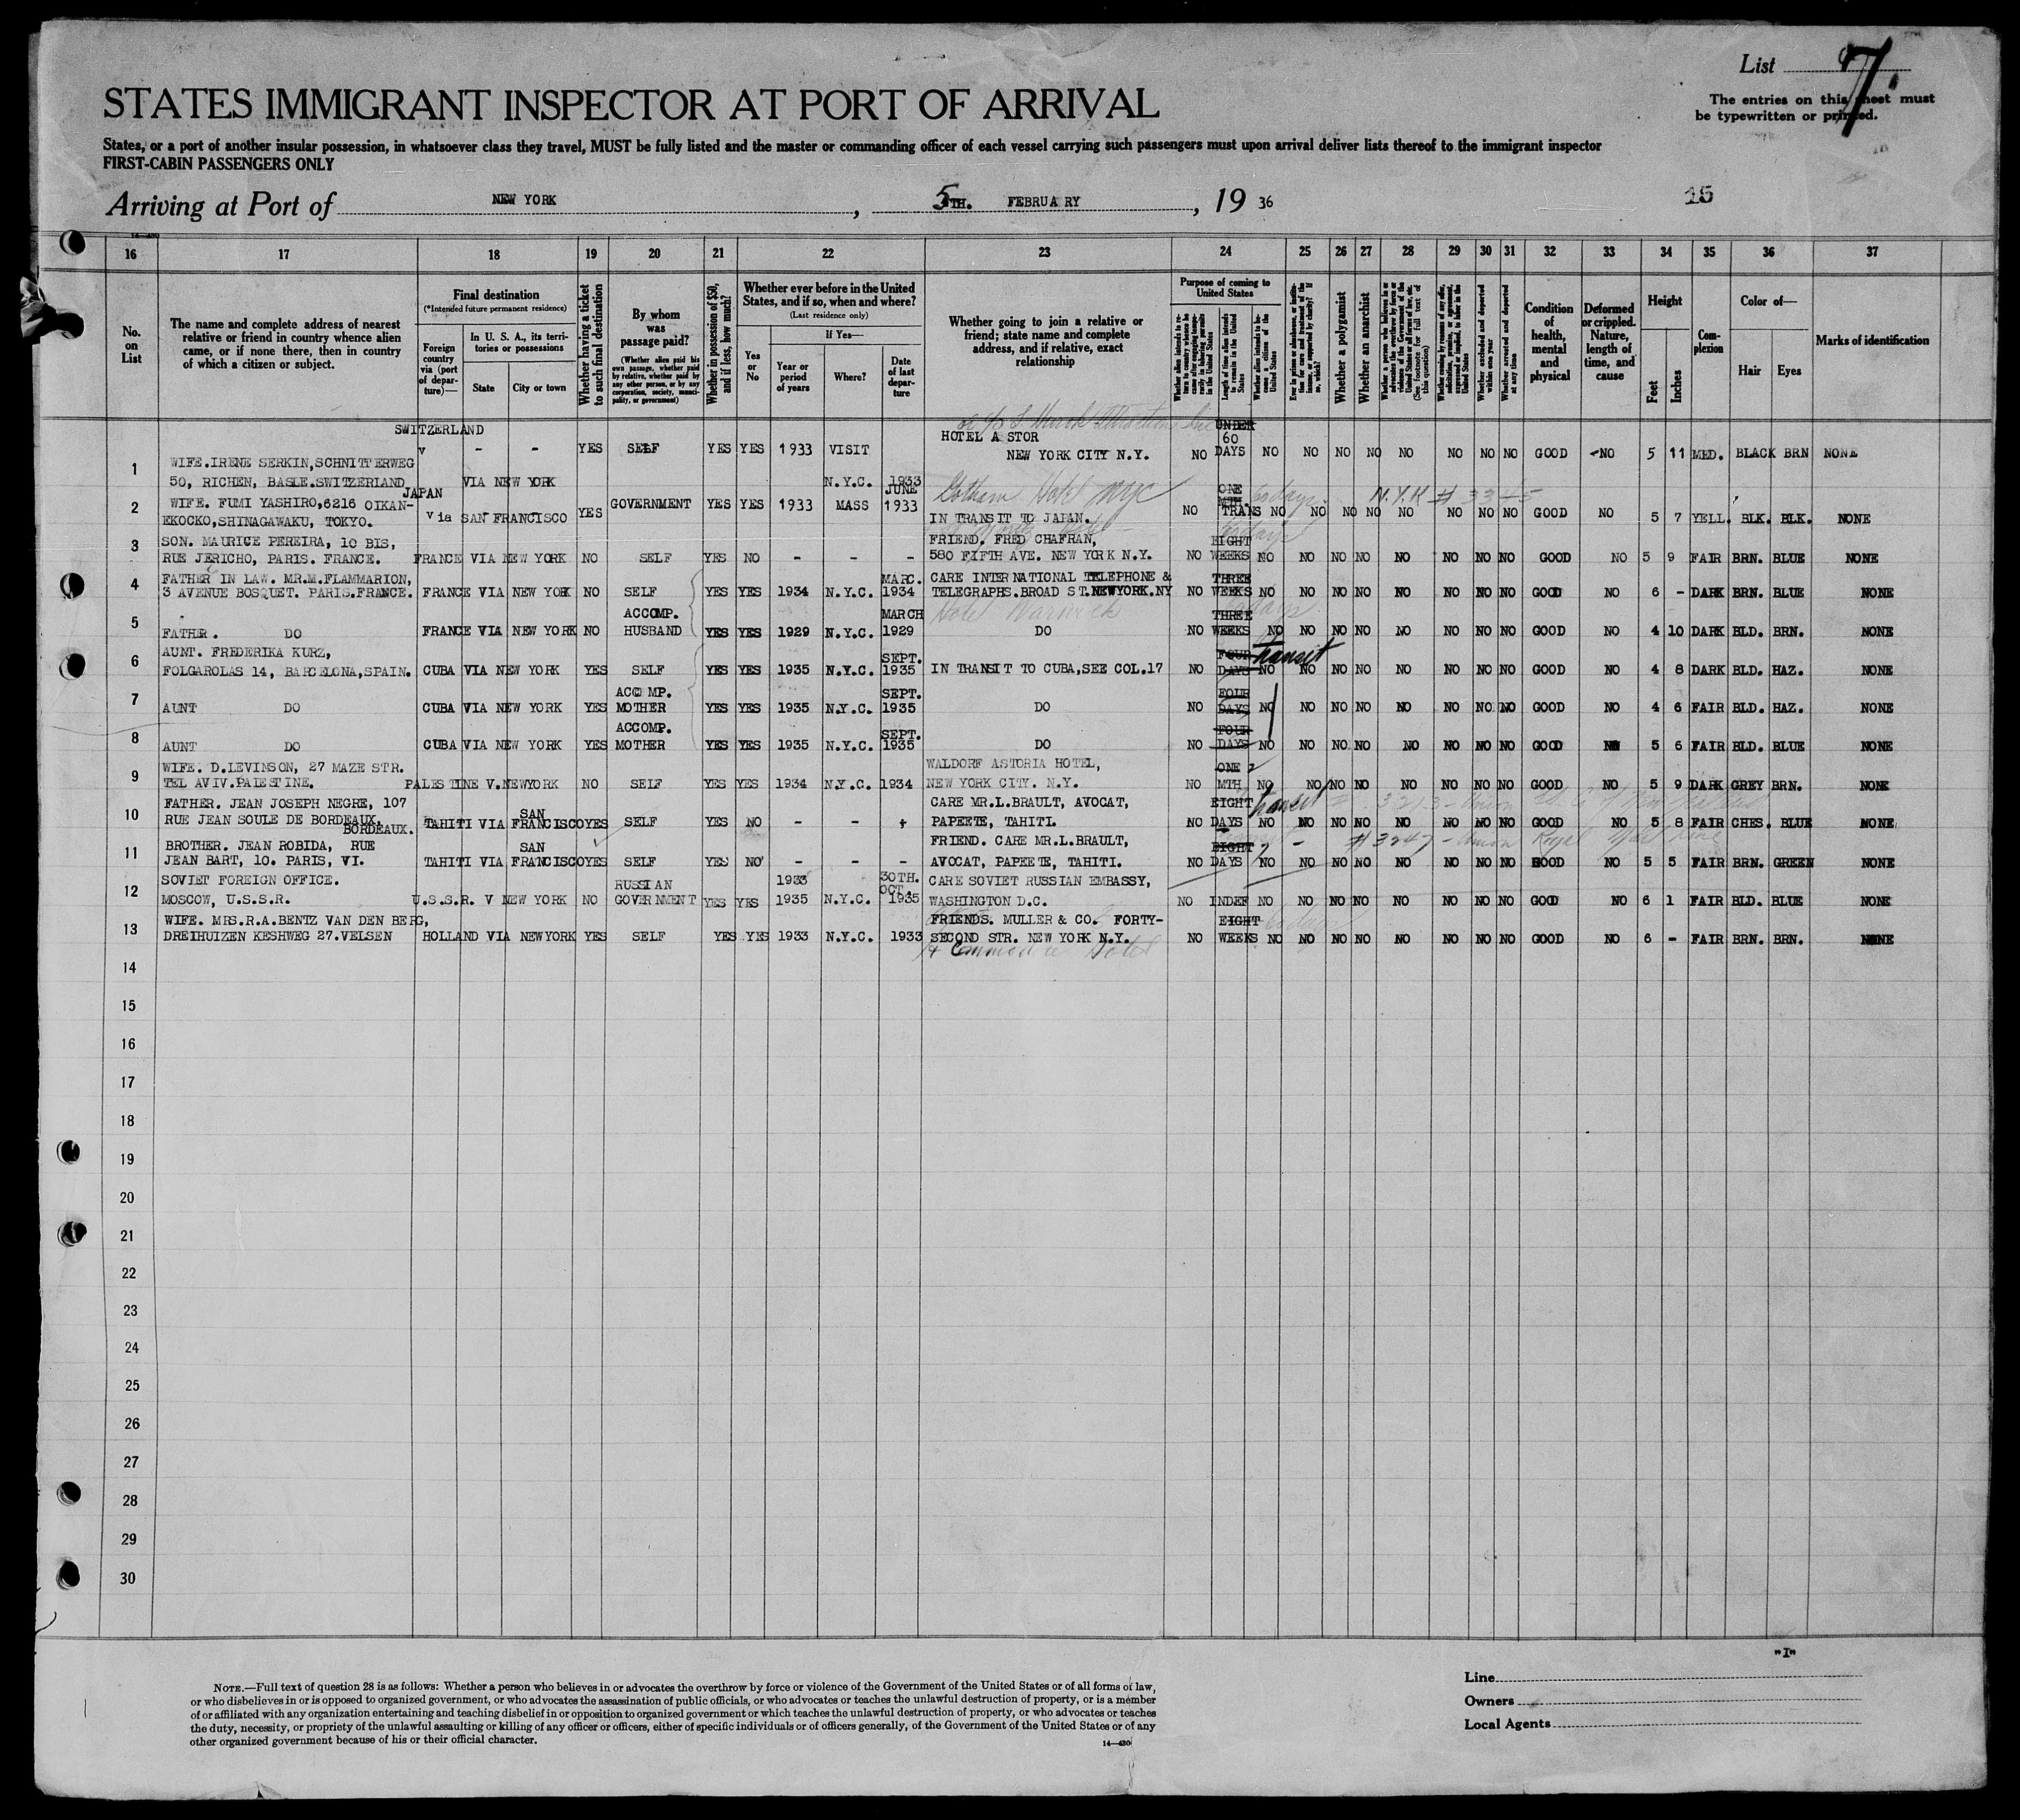 List 7
The entries on this sheet must
be typewritten or printed.
STATES IMMIGRANT INSPECTOR AT PORT OF ARRIVAL
States, or a port of another insular possession, in whatsoever class they travel, MUST be fully listed and the master or commanding officer of each vessel carrying such passengers must upon arrival deliver lists thereof to the immigrant inspector
FIRST-CABIN PASSENGERS ONLY
Arriving at Port of NEW YORK, 5TH. FEBRUARY, 19 36
15
14—430
16 17 18 19 20 21 22 23 24 25 26 27 28 29 30 31 32 33 34 35 36 37
No. on List
The name and complete address of nearest relative or friend in country whence alien came, or if none there, then in country of which a citizen or subject.
Final destination
(*Intended future permanent residence)
Foreign country via (port of departure)—
In U. S. A., its territories or possessions
State
City or town
Whether having a ticket to such final destination
By whom was passage paid?
(Whether alien paid his own passage, whether paid by relative, whether paid by any other person, or by any corporation, society, municipality, or government)
Whether in possession of $50, and if less, how much?
Whether ever before in the United States, and if so, when and where?
(Last residence only)
Yes or No
If Yes—
Year or period of years
Where?
Date of last departure
Whether going to join a relative or friend; state name and complete address, and if relative, exact relationship
Purpose of coming to United States
Length of time alien intends to remain in the United States
Whether alien intends to become a citizen of the United States
Whether a polygamist
Whether an anarchist
Whether excluded and deported within one year
Whether arrested and deported at any time
Condition of health, mental and physical
Deformed or crippled. Nature, length of time, and cause
Height
Feet
Inches
Complexion
Color of—
Hair
Eyes
Marks of identification
SWITZERLAND UNDER
HOTEL ASTOR 60
1 WIFE.IRENE SERKIN,SCHNITTERWEG v - - YES SELF YES YES 1933 VISIT NEW YORK CITY N.Y. NO DAYS NO NO NO NO NO NO NO NO GOOD NO 5 11 MED. BLACK BRN NONE
50, RICHEN, BASLE.SWITZERLAND VIA NEW YORK N.Y.C. 1933
JAPAN JUNE Gotham Hotel NYC ONE MTH 60 days N.Y.K # 3345
2 WIFE. FUMI YASHIRO,6216 OIKAN- Via SAN FRANCISCO YES GOVERNMENT YES YES 1933 MASS 1933 NO TRANS NO NO NO NO NO NO NO NO GOOD NO 5 7 YELL. BLK. BLK. NONE
EKOCKO,SHINAGAWAKU, TOKYO. IN TRANSIT TO JAPAN.
3 SON. MAURICE PEREIRA, 10 BIS, FRIEND. FRED CHAFRAN, EIGHT
RUE JERICHO, PARIS. FRANCE. FRANCE VIA NEW YORK NO SELF YES NO - - - 580 FIFTH AVE. NEW YORK N.Y. NO WEEKS NO NO NO NO NO NO NO NO GOOD NO 5 9 FAIR BRN. BLUE NONE
4 FATHER IN LAW. MR.M.FLAMMARION, MARC. CARE INTERNATIONAL TELEPHONE & THREE
3 AVENUE BOSQUET. PARIS.FRANCE. FRANCE VIA NEW YORK NO SELF YES YES 1934 N.Y.C. 1934 TELEGRAPHS.BROAD ST.NEWYORK.NY NO WEEKS NO NO NO NO NO NO NO NO GOOD NO 6 - DARK BRN. BLUE NONE
5 ACCOMP. MARCH Hotel Warwick THREE
FATHER. DO FRANCE VIA NEW YORK NO HUSBAND YES YES 1929 N.Y.C. 1929 DO NO WEEKS NO NO NO NO NO NO NO NO GOOD NO 4 10 DARK BLD. BRN. NONE
6 AUNT. FREDERIKA KURZ, SEPT. FOUR transit
FOLGAROLAS 14, BARCELONA,SPAIN. CUBA VIA NEW YORK YES SELF YES YES 1935 N.Y.C. 1935 IN TRANSIT TO CUBA,SEE COL.17 NO DAYS NO NO NO NO NO NO NO NO GOOD NO 4 8 DARK BLD. HAZ. NONE
7 ACCOMP. SEPT. FOUR
AUNT DO CUBA VIA NEW YORK YES MOTHER YES YES 1935 N.Y.C. 1935 DO NO DAYS NO NO NO NO NO NO NO NO GOOD NO 4 6 FAIR BLD. HAZ. NONE
8 ACCOMP. SEPT. FOUR
AUNT DO CUBA VIA NEW YORK YES MOTHER YES YES 1935 N.Y.C. 1935 DO NO DAYS NO NO NO NO NO NO NO NO GOOD NO 5 6 FAIR BLD. BLUE NONE
9 WIFE. D.LEVINSON, 27 MAZE STR. WALDORF ASTORIA HOTEL, ONE
TEL AVIV.PALESTINE. PALESTINE V.NEWYORK NO SELF YES YES 1934 N.Y.C. 1934 NEW YORK CITY. N.Y. NO MTH NO NO NO NO NO NO NO NO GOOD NO 5 9 DARK GREY BRN. NONE
10 FATHER. JEAN JOSEPH NEGRE, 107 SAN CARE MR.L.BRAULT, AVOCAT, EIGHT transit
RUE JEAN SOULE DE BORDEAUX, BORDEAUX. TAHITI VIA FRANCISCO YES SELF YES NO - - - PAPEETE, TAHITI. NO DAYS NO NO NO NO NO NO NO NO GOOD NO 5 8 FAIR CHES. BLUE NONE
11 BROTHER. JEAN ROBIDA, RUE SAN FRIEND. CARE MR.L.BRAULT, EIGHT # 3247 - Union Royal Mail Line
JEAN BART, 10. PARIS, VI. TAHITI VIA FRANCISCO YES SELF YES NO - - - AVOCAT, PAPEETE, TAHITI. NO DAYS NO NO NO NO NO NO NO NO GOOD NO 5 5 FAIR BRN. GREEN NONE
12 SOVIET FOREIGN OFFICE. RUSSIAN 1933 30TH. OCT. CARE SOVIET RUSSIAN EMBASSY,
MOSCOW, U.S.S.R. U.S.S.R. V NEW YORK NO GOVERNMENT YES YES 1935 N.Y.C. 1935 WASHINGTON D.C. NO INDEF NO NO NO NO NO NO NO NO GOOD NO 6 1 FAIR BLD. BLUE NONE
13 WIFE. MRS.R.A.BENTZ VAN DEN BERG, FRIENDS. MULLER & CO. FORTY- EIGHT
DREIHUIZEN KESHWEG 27.VELSEN HOLLAND VIA NEWYORK YES SELF YES YES 1933 N.Y.C. 1933 SECOND STR. NEW YORK N.Y. NO WEEKS NO NO NO NO NO NO NO NO GOOD NO 6 - FAIR BRN. BRN. NONE
Commodore Hotel
14
15
16
17
18
19
20
21
22
23
24
25
26
27
28
29
30
"I"
NOTE.—Full text of question 28 is as follows: Whether a person who believes in or advocates the overthrow by force or violence of the Government of the United States or of all forms of law,
or who disbelieves in or is opposed to organized government, or who advocates the assassination of public officials, or who advocates or teaches the unlawful destruction of property, or is a member
of or affiliated with any organization entertaining and teaching disbelief in or opposition to organized government or which teaches the unlawful destruction of property, or who advocates or teaches
the duty, necessity, or propriety of the unlawful assaulting or killing of any officer or officers, either of specific individuals or of officers generally, of the Government of the United States or of any
other organized government because of his or their official character.
14—430
Line
Owners
Local Agents